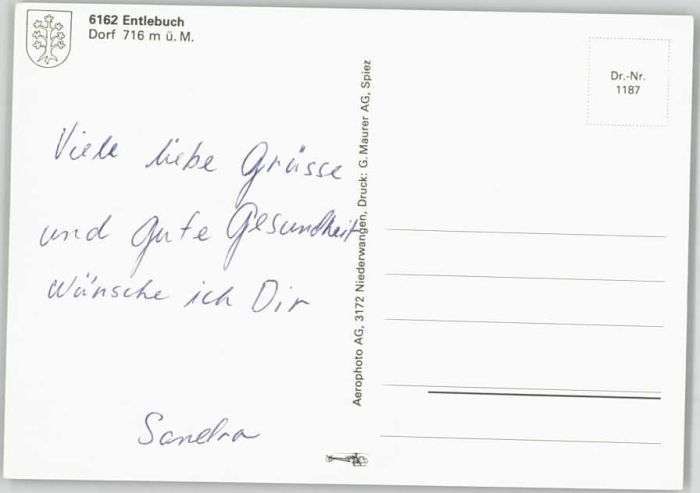 6162 Entlebuch
Dorf 716 m ü. M.
Dr.-Nr.
1187
Viele liebe Grüsse
und gute Gesundheit
wünsche ich Dir
Sandra
Aerophoto AG, 3172 Niederwangen, Druck: G. Maurer AG, Spiez